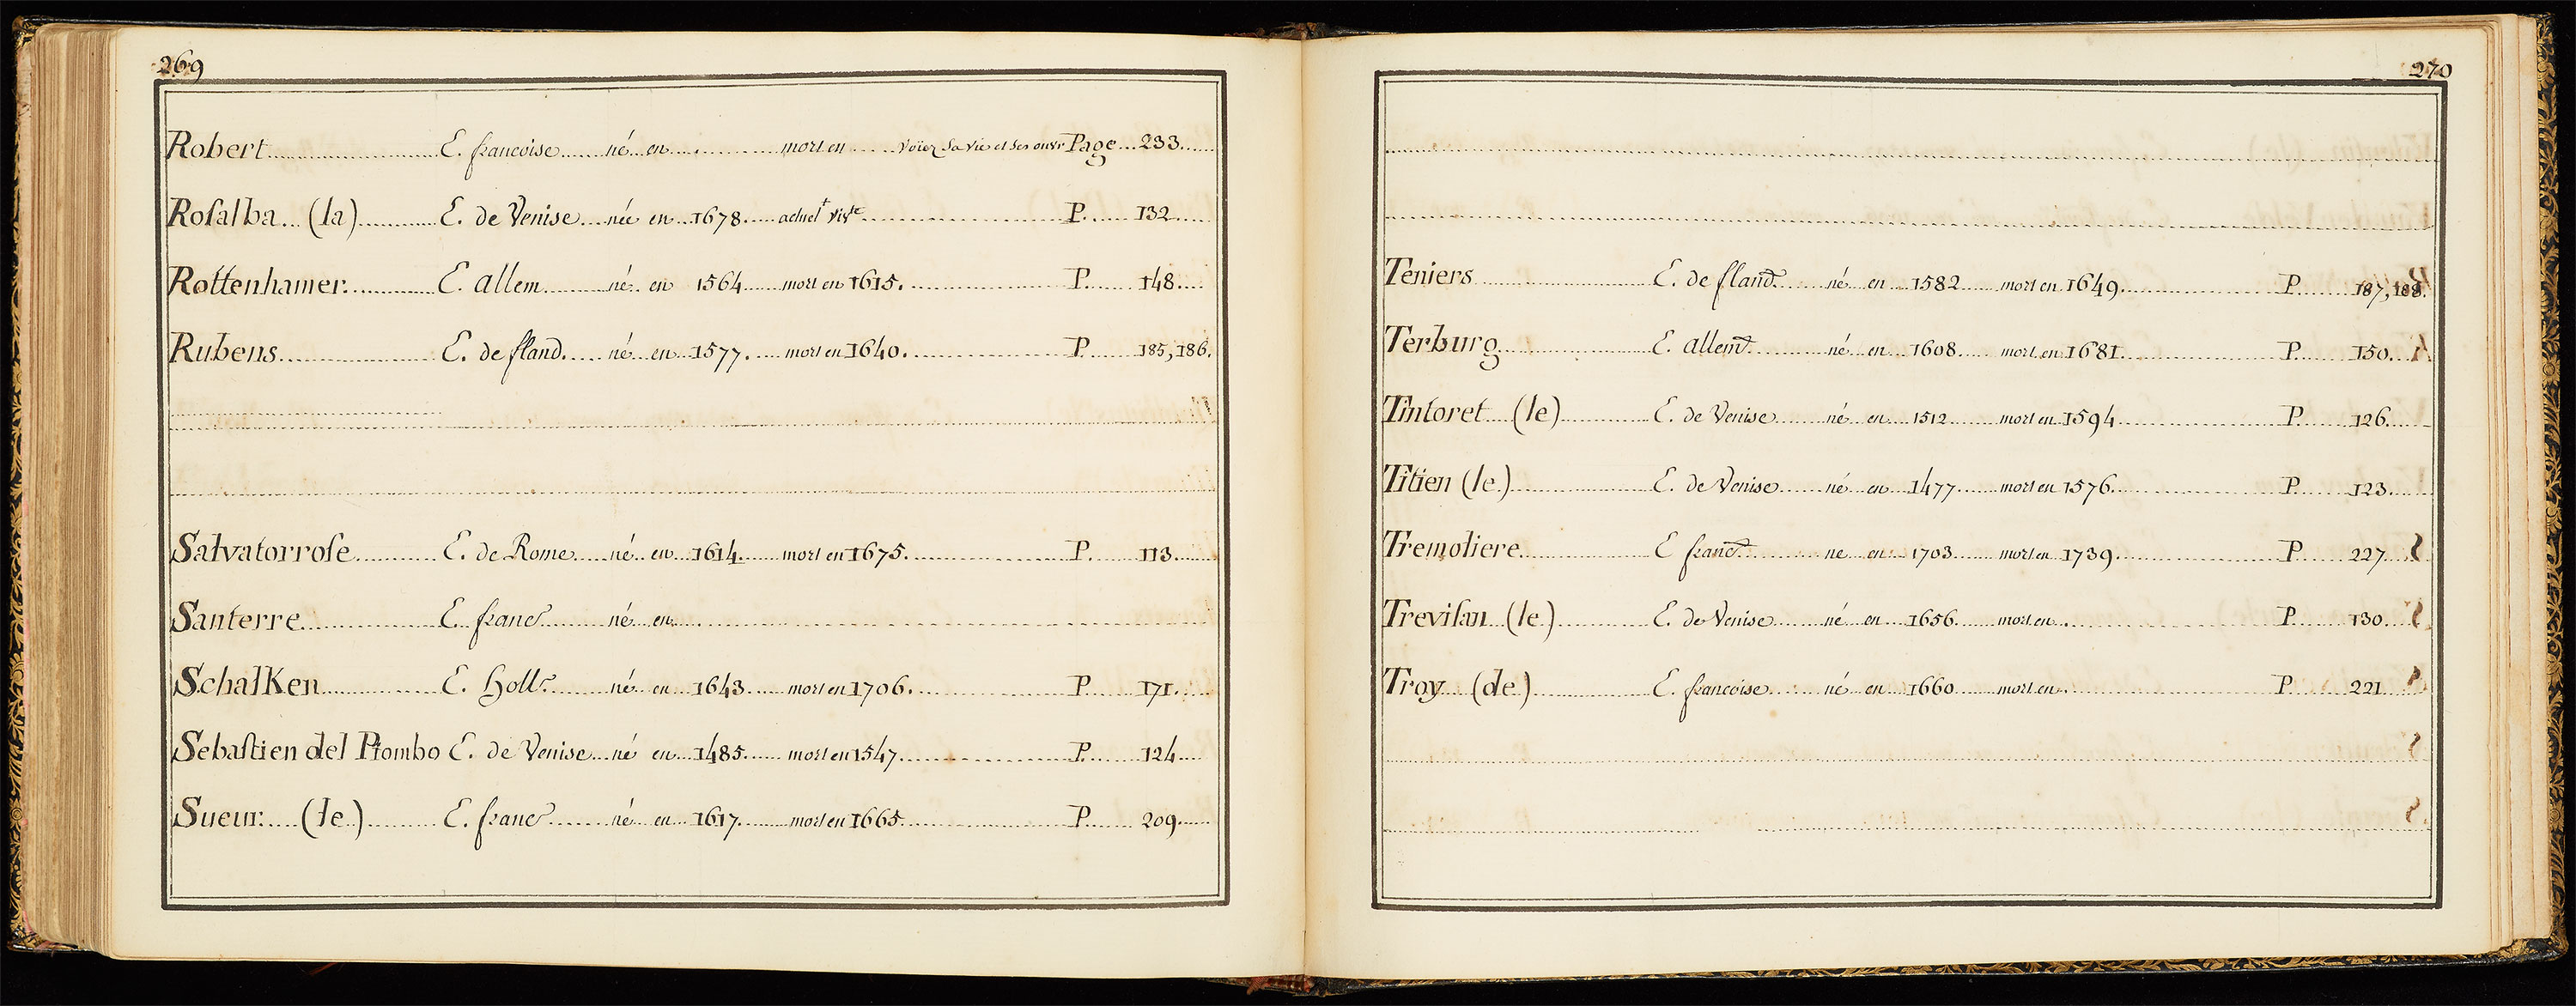 269
Robert E. francoise né en mort en voiez sa vie et ses ouvr Page 233.
Rosalba (la) E. de Venise née en 1678. actuelt vivte P. 132
Rottenhamer. E. allem né en 1564 mort en 1615. P. 148
Rubens E. de fland. né en 1577. mort en 1640. P 185, 186.
Salvatorrose E. de Rome né en 1614 mort en 1675. P. 113.
Santerre E. franc né en
Schalken E. Holl né en 1643 mort en 1706. P 171.
Sebastien del Piombo E. de Venise né en 1485 mort en 1547. P. 124
Sueur (le) E. franc né en 1617. mort en 1665. P. 209.
270
Teniers E. de fland né en 1582 mort en 1649. P 187, 188.
Terburg E. allem né en 1608 mort en 1681. P 150.
Tintoret (le) E. de Venise né en 1512 mort en 1594 P 126.
Titien (le) E. de Venise né en 1477 mort en 1576. P 123.
Tremoliere E franc ne en 1703 mort en 1739. P 227
Trevisan (le) E. de Venise né en 1656. mort en P 130.
Troy (de) E. francoise né en 1660 mort en P 221